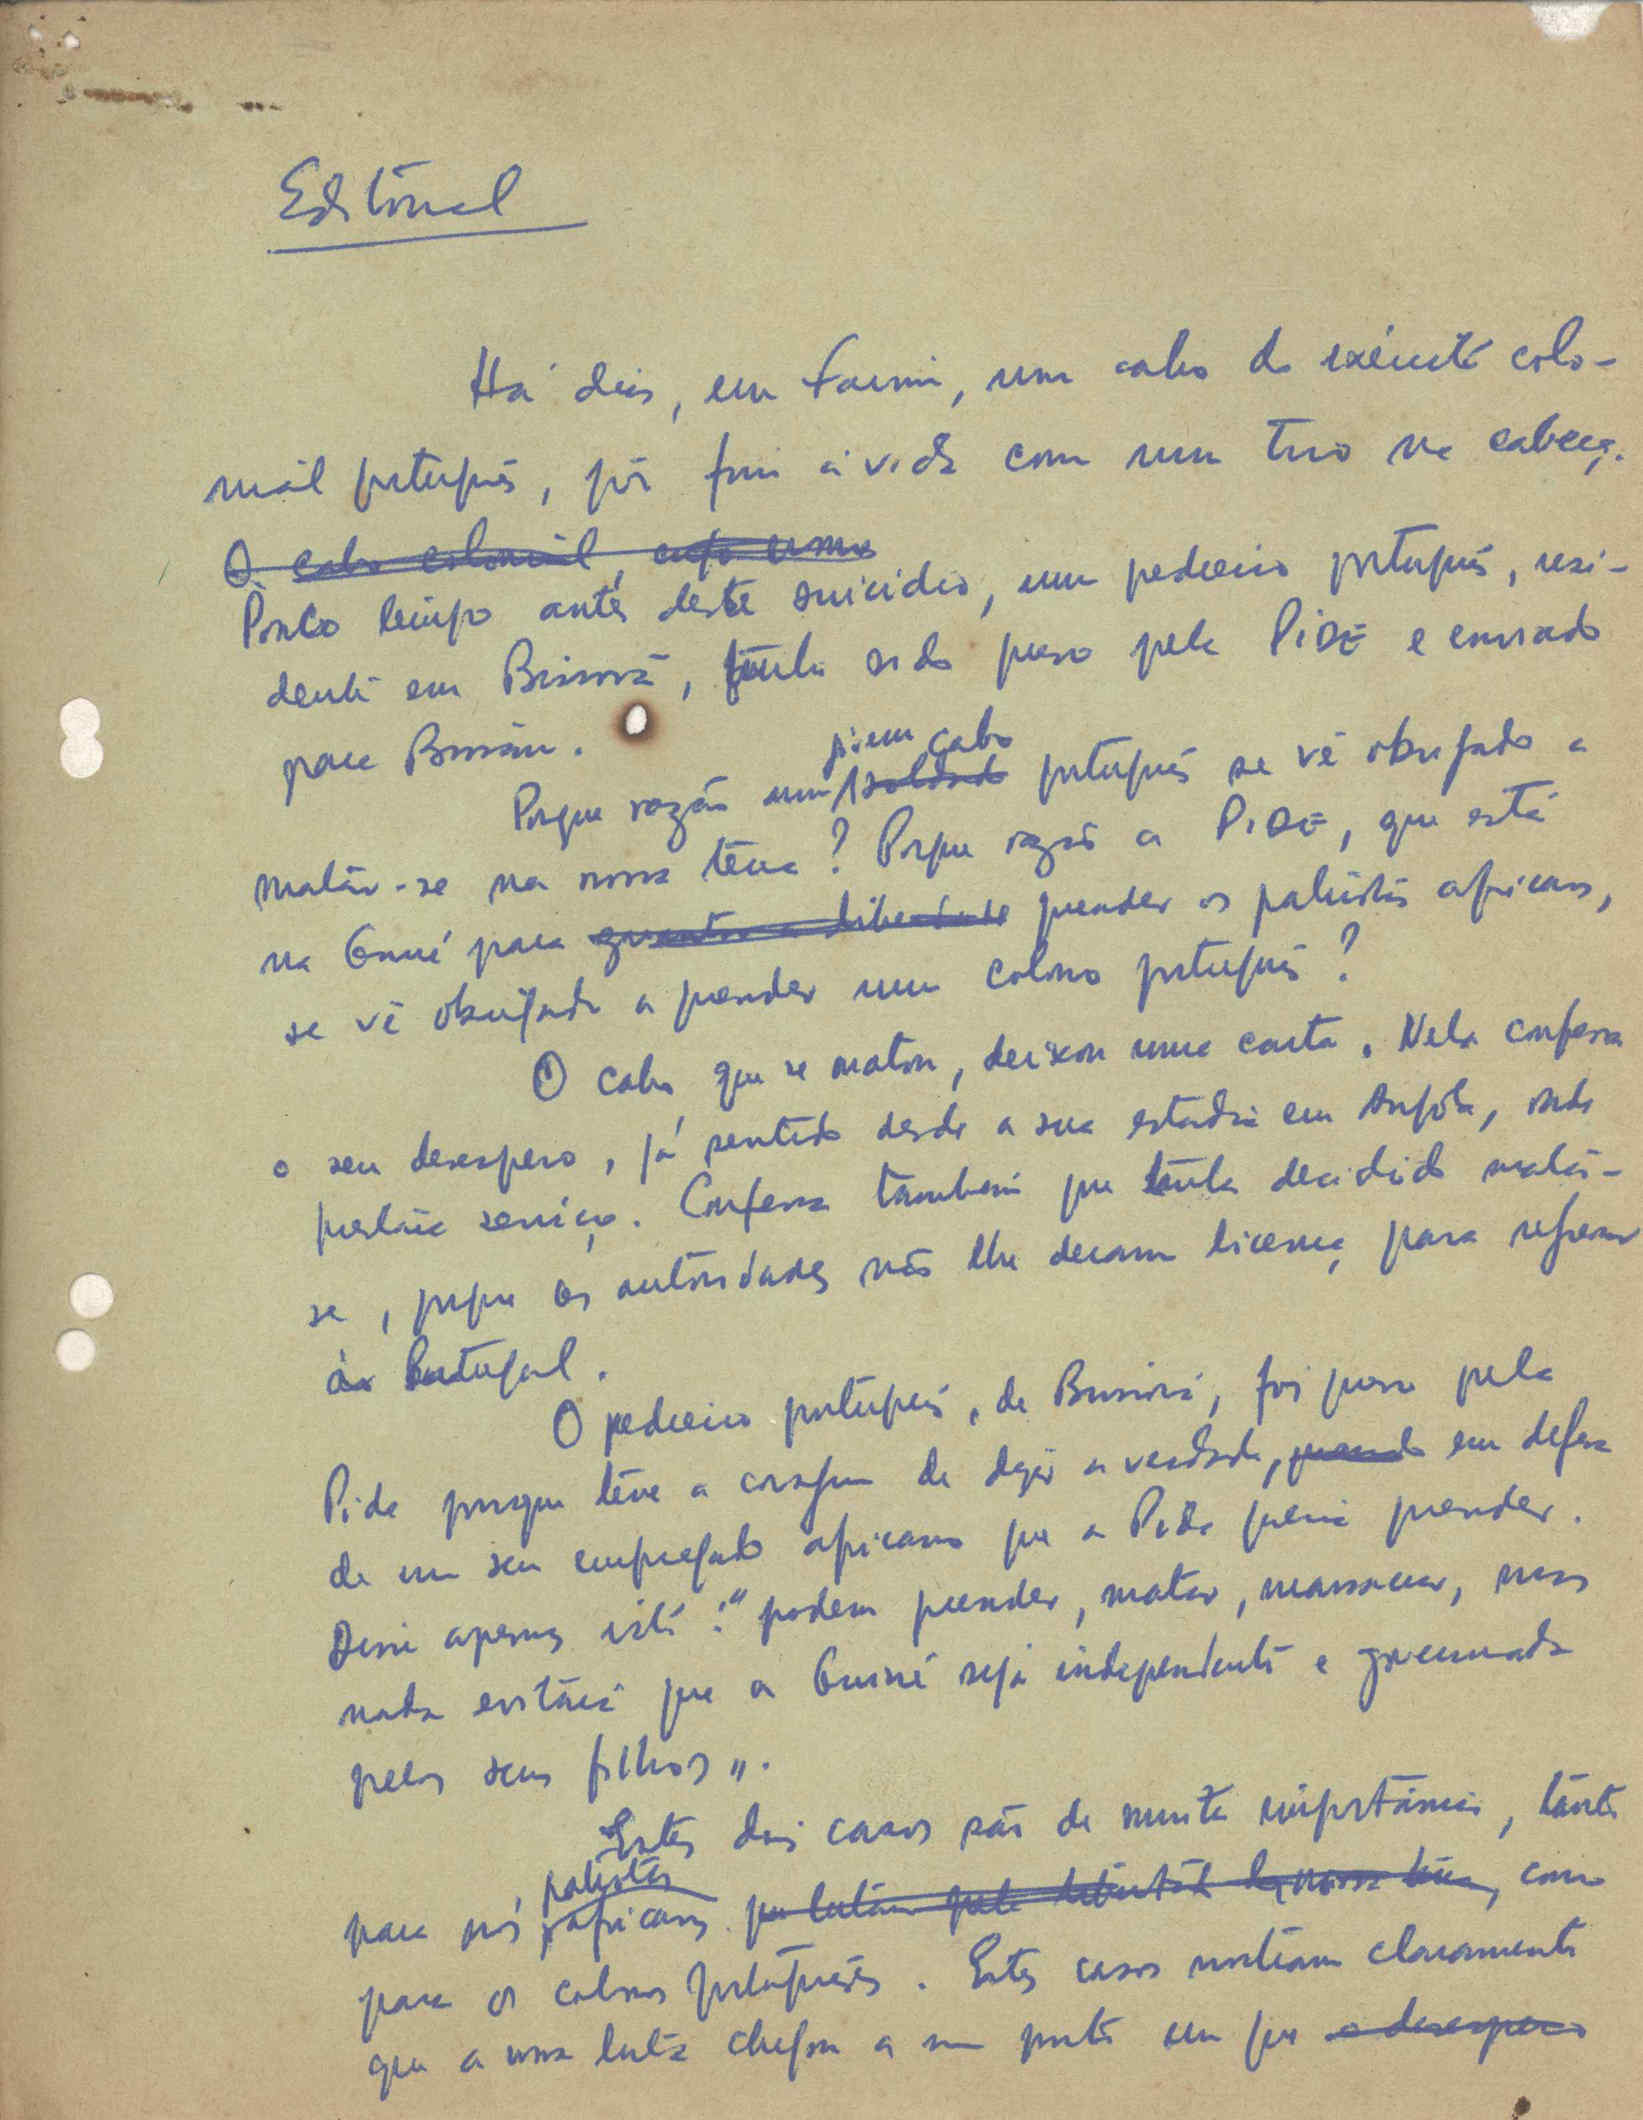 Editorial
Há dias, em Farim, um cabo do exército colo-
nial português, pôs fim à vida com um tiro na cabeça.
O cabo colonial, cujo nome
Pouco tempo antes deste suicídio, um pedreiro português, resi-
dente em Bissorã, tinha sido preso pela PIDE e enviado
para Bissau.
Porque razão um jovem cabo soldado português se vê obrigado a
matar-se na nossa terra? Porque razão a PIDE, que está
na Guiné para prender os patriotas africanos,
se vê obrigada a prender um colono português?
O cabo que se matou, deixou uma carta. Nela confessa
o seu desespero, já sentido desde a sua estadia em Angola, onde
prestara serviço. Confessa também que tinha decidido matar-
se, porque as autoridades não lhe deram licença para regressar
a Portugal.
O pedreiro português, de Bissorã, foi preso pela
Pide porque teve a coragem de dizer a verdade, quando em defesa
de um seu empregado africano que a Pide queria prender.
Disse apenas isto: "podem prender, matar, massacrar, mas
nada evitará que a Guiné seja independente e governada
pelos seus filhos".
Estes dois casos são de muita importância, tanto
para nós, patriotas africanos que lutam pela libertação da nossa terra, como
para os colonos portugueses. Estes casos mostram claramente
que a nossa luta chegou a um ponto em que o desespero